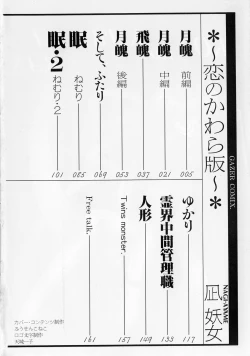 ＊～恋のかわら版～＊
GAZER COMIX.
凪妖女
NAGI-AYAME
月魄 前編 005
月魄 中編 021
飛魄 037
月魄 後編 053
そして、ふたり 069
眠 ねむり 085
眠・2 ねむり・2 101
ゆかり 117
霊界中間管理職 133
人形 149
Twins monster. 157
Free talk. 161
カバー・コンテンツ制作
ロゴ文字制作
天城一子